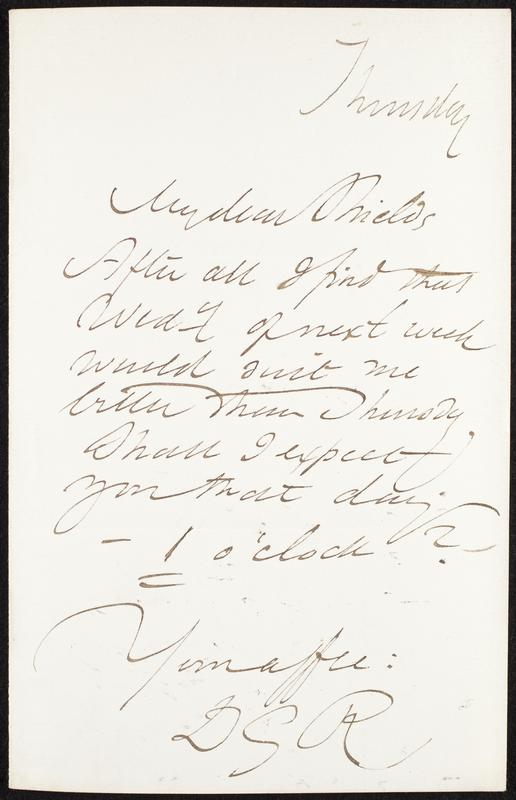 Thursday
My dear Shields
After all I find that
Wedy of next week
would suit me
better than Thursdy.
Shall I expect
you that day
– 1 o'clock ?
Your affec:
DGR